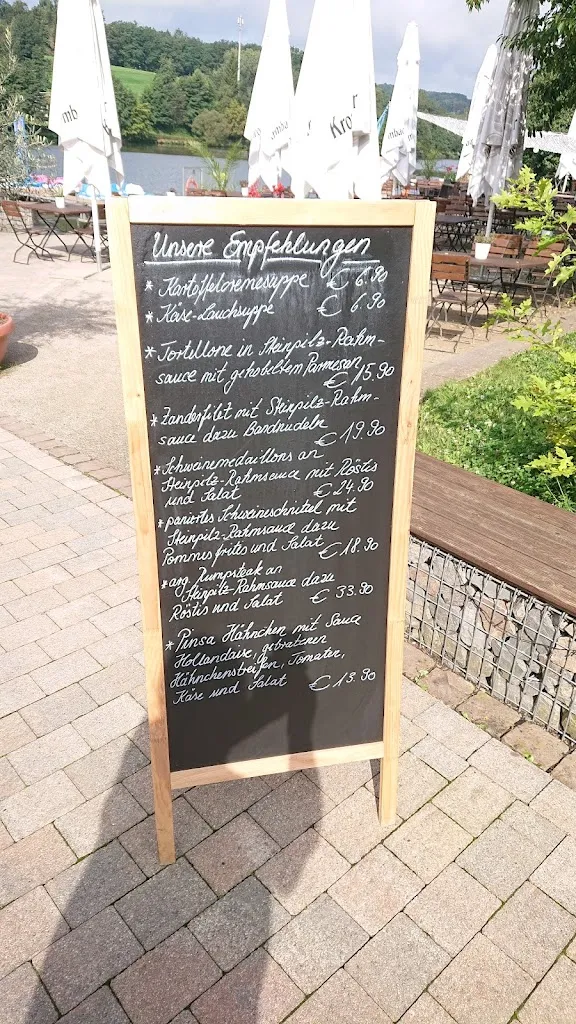 mb
Kro
Unsere Empfehlungen
* Kartoffelcremesuppe € 6.90
* Käse-Lauchsuppe € 6.90
* Tortellone in Steinpilz-Rahm-
sauce mit gehobelten Parmesan
€ 15.90
* Zanderfilet mit Steinpilz-Rahm-
sauce dazu Bandnudeln
€ 19.90
* Schweinemedaillons an
Steinpilz-Rahmsauce mit Röstis
und Salat € 24.90
* paniertes Schweineschnitzel mit
Steinpilz-Rahmsauce dazu
Pommes frites und Salat € 18.90
* arg. Rumpsteak an
Steinpilz-Rahmsauce dazu
Röstis und Salat € 33.90
* Pinsa Hähnchen mit Sauce
Hollandaise, gebratener
Hähnchenstreifen, Tomaten,
Käse und Salat € 13.90